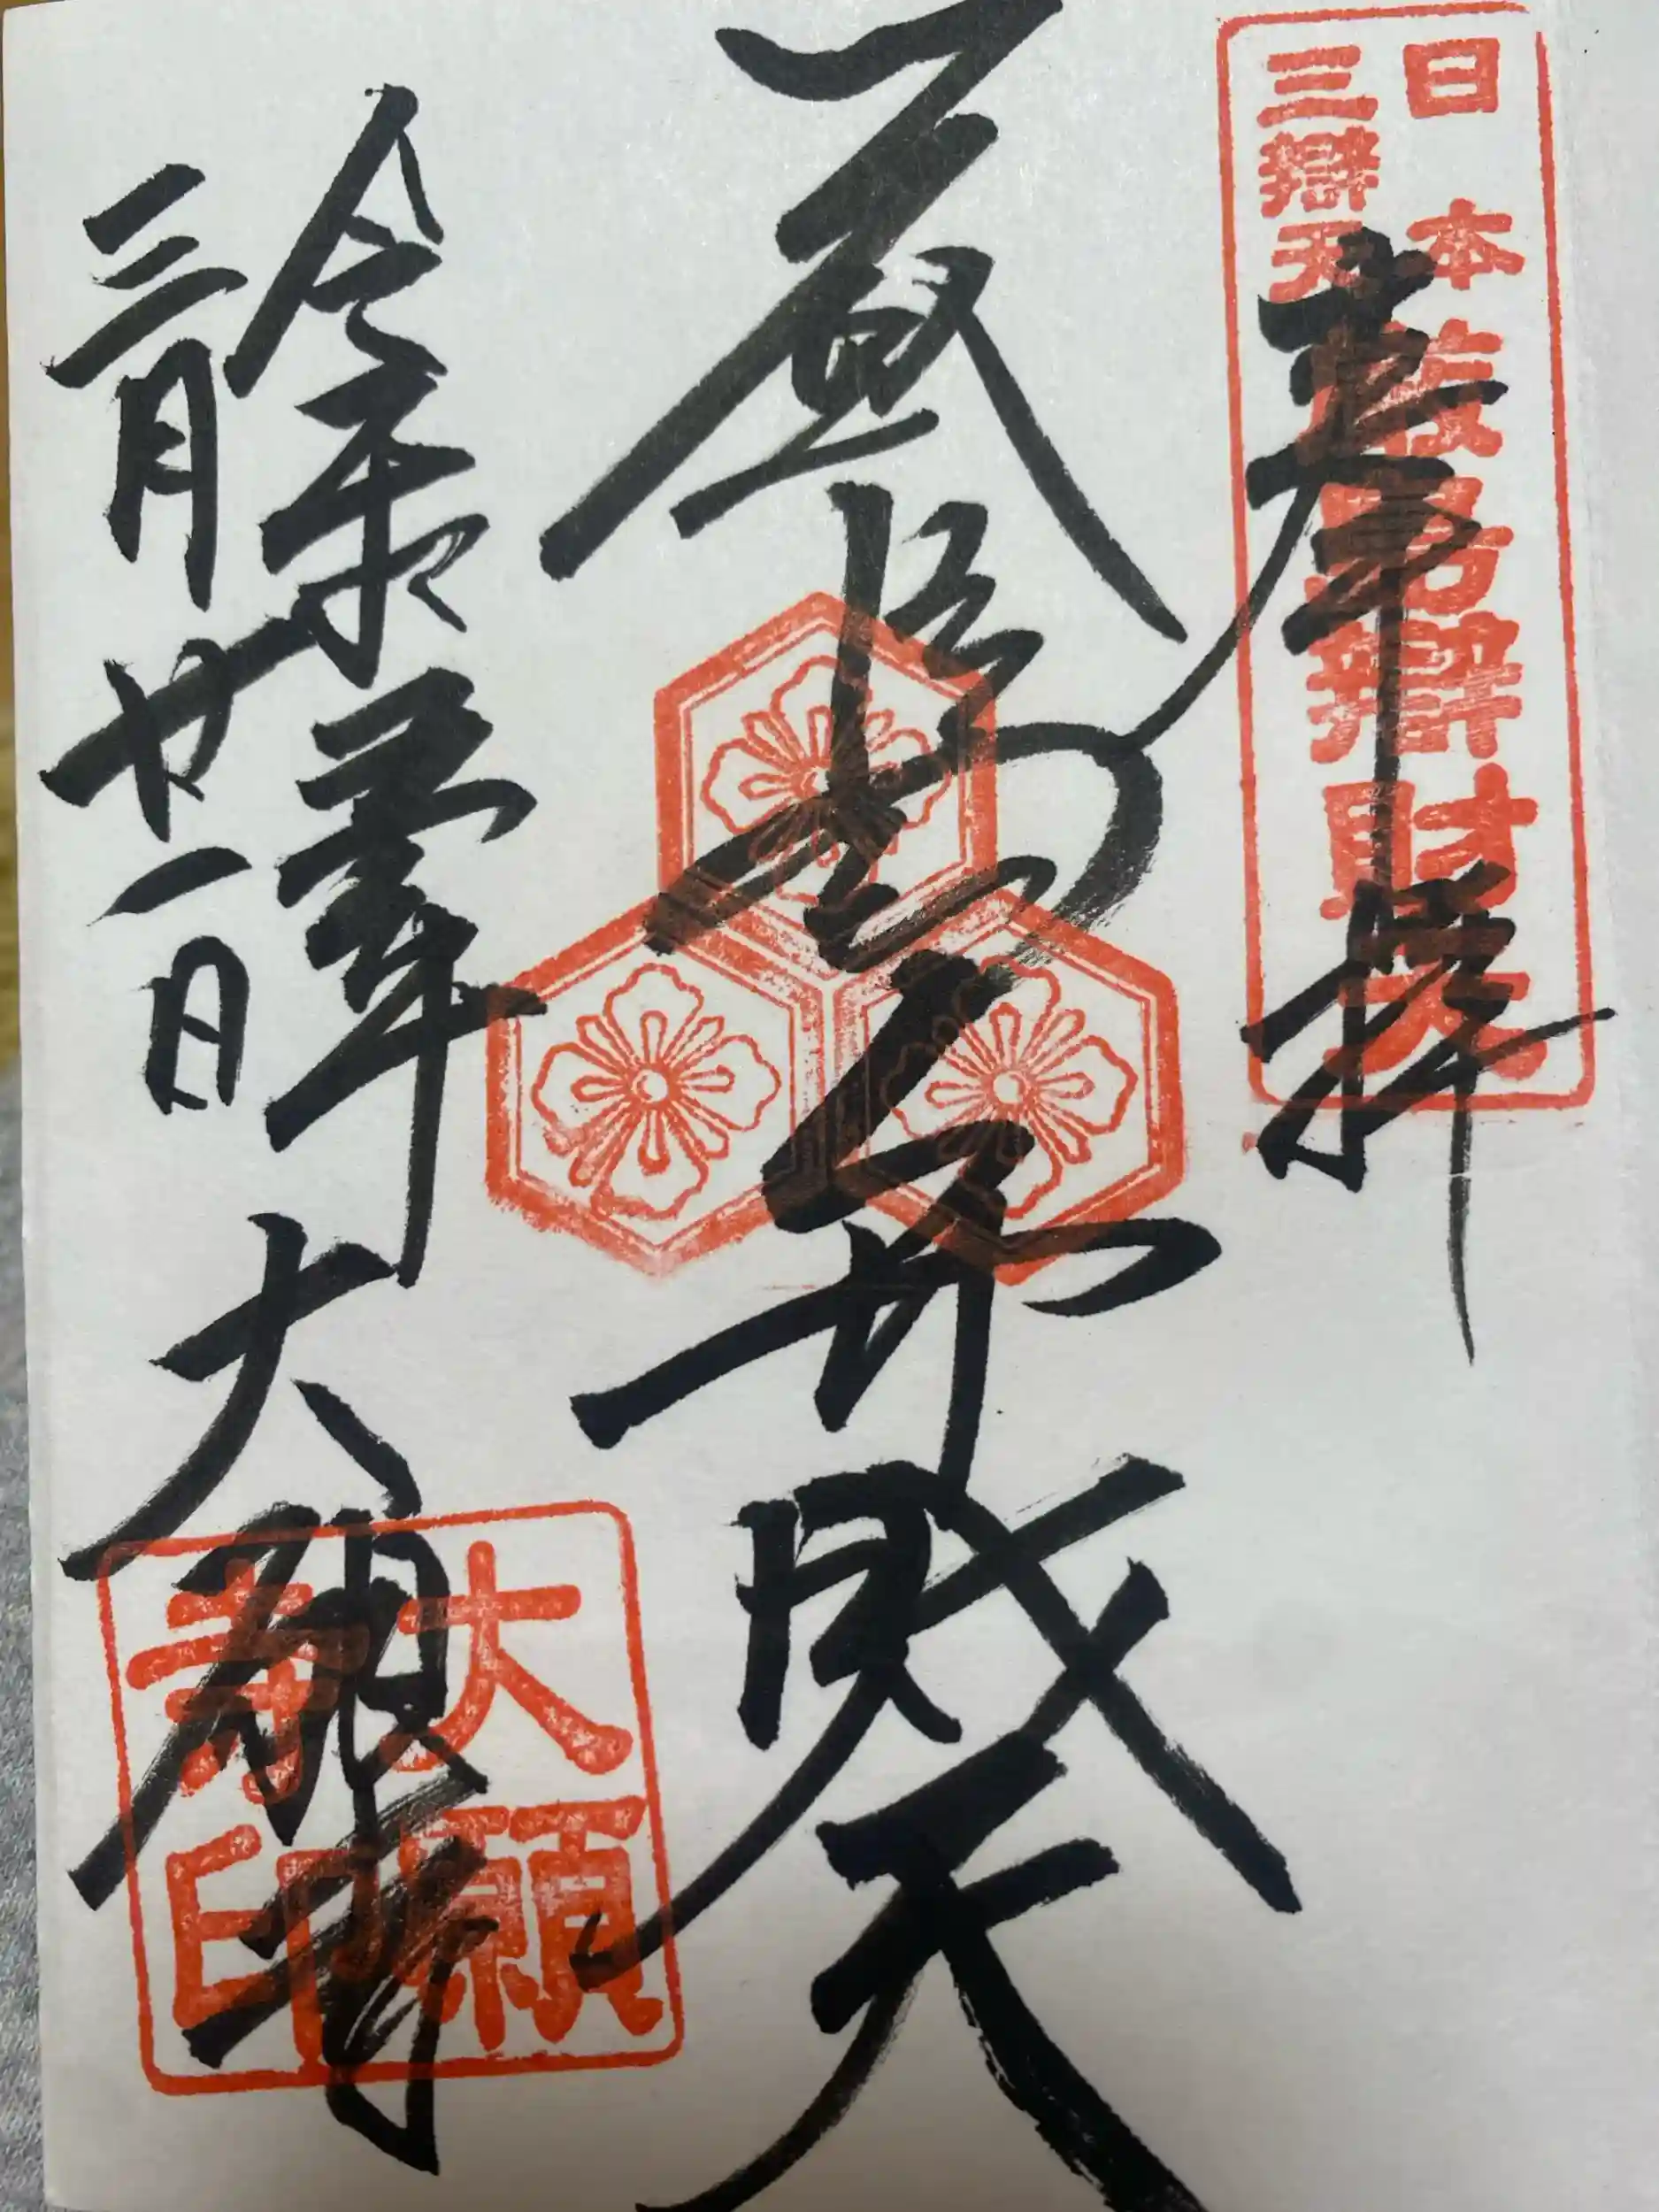 奉拝
日本
三辯天
厳島辯財天
厳嶋弁財天
令和 年
三月廿一日
大願寺
大願
寺印